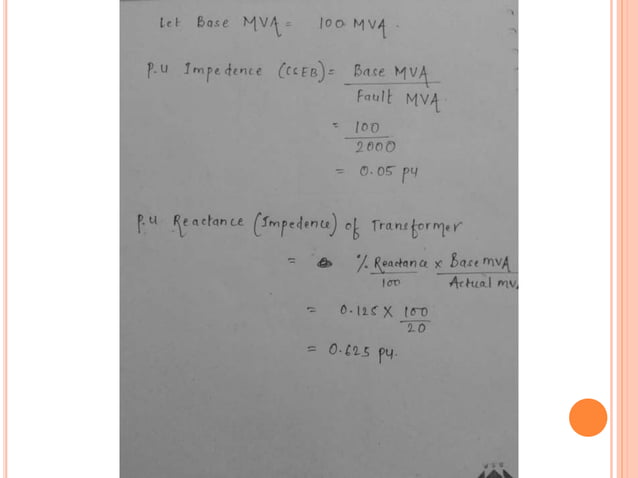 Let Base MVA = 100 MVA.
P.U Impedence (CSEB) = Base MVA
Fault MVA.
= 100
2000
= 0.05 pu
P.U Reactance (Impedence) of Transformer
= % Reactance x Base MVA
100 Actual MVA
= 0.125 X 100
20
= 0.625 pu.